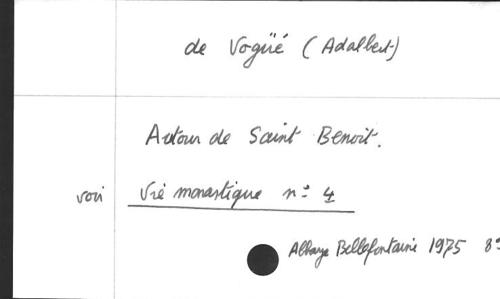 de Vogüé (Adalbert)
Autour de Saint Benoit.
voir Vie monastique n° 4
Abbaye Bellefontaine 1975 8°